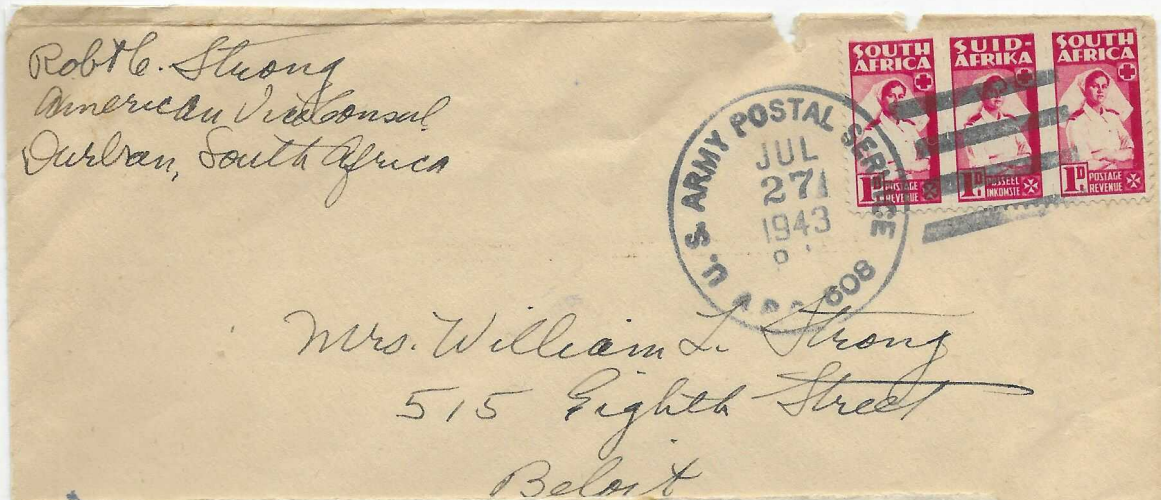 Robt C. Strong
American Vice Consul
Durban, South Africa
U.S. ARMY POSTAL SERVICE
JUL
27
1943
A.P.O. 608
SOUTH AFRICA
1D POSTAGE REVENUE
SUID-AFRIKA
1D POSSEEL INKOMSTE
SOUTH AFRICA
1D POSTAGE REVENUE
Mrs. William L. Strong
515 Eighth Street
Beloit